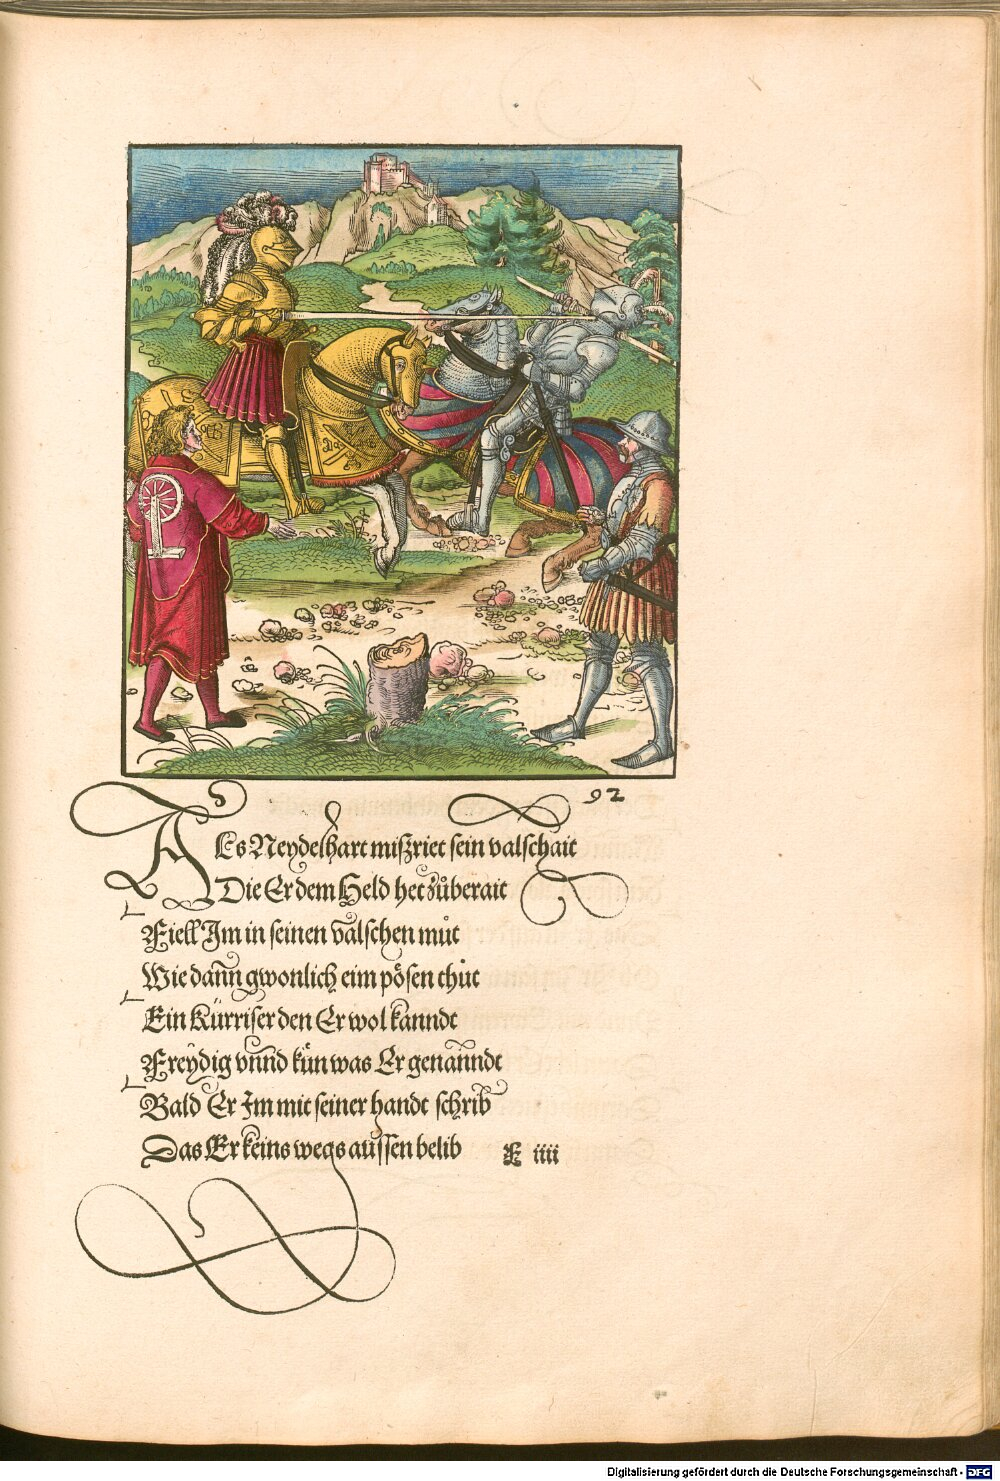 92
ALs Neydelhart miszriet sein valschait
Die Er dem Held het zůberait
Fiell Im in seinen valschen můt
Wie dann gwonlich eim pősen thůt
Ein Kürriser den Er wol kanndt
Freydig vnnd kůn was Er genanndt
Bald Er Im mit seiner handt schrib
Das Er keins wegs aussen belib
k iiii
Digitalisierung gefördert durch die Deutsche Forschungsgemeinschaft - DFG